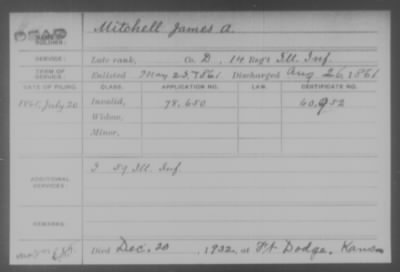 DEAD
NAME OF SOLDIER: Mitchell James A.
SERVICE: Late rank, Co. D, 14 Reg't Ill. Inf.
TERM OF SERVICE: Enlisted May 23, 1861 Discharged Aug 26, 1861
DATE OF FILING. CLASS. APPLICATION NO. LAW. CERTIFICATE NO.
1865, July 20 Invalid, 78,650 60,952
Widow,
Minor,
ADDITIONAL SERVICES: I 59 Ill. Inf.
REMARKS:
Died Dec. 20, 1932, at Ft Dodge, Kans